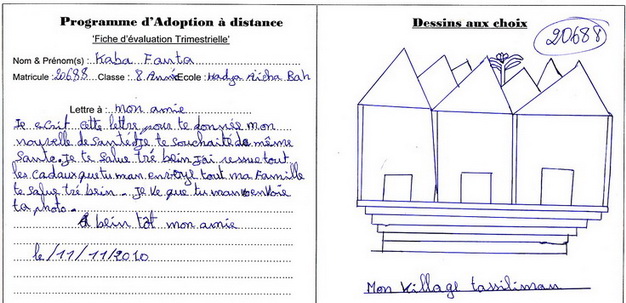 Programme d'Adoption à distance
'Fiche d'évaluation Trimestrielle'
Nom & Prénom(s) : Kaba Fanta
Matricule : 20688 Classe : 8 Année Ecole : Hadja Aicha Bah
Lettre à : mon amie
Je ecrit cette lettre pour te donnée mon
nouvelle de santé, je te souhaite de même
sante. Je te salue tré bein J'ai ressue tout
les cadaux que tu man envoyé tout ma Famille
te salue tré bein - Je ve que tu man envoie
ta photo.
A bein tôt mon amie
le /11/11/2010
Dessins aux choix
20688
Mon village tassiliman